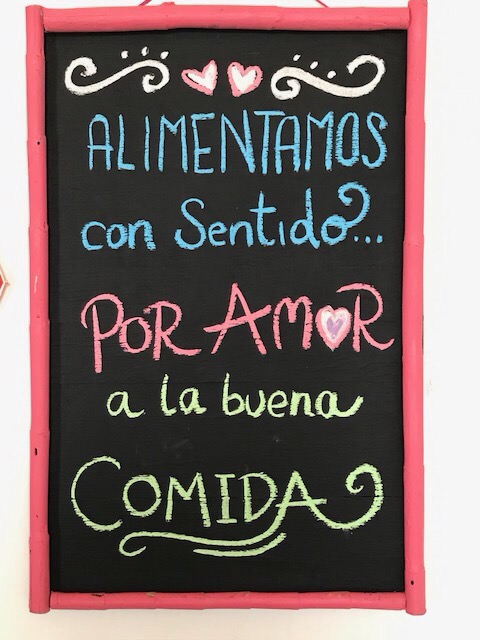 ALIMENTAMOS
con Sentido...
POR AMOR
a la buena
COMIDA